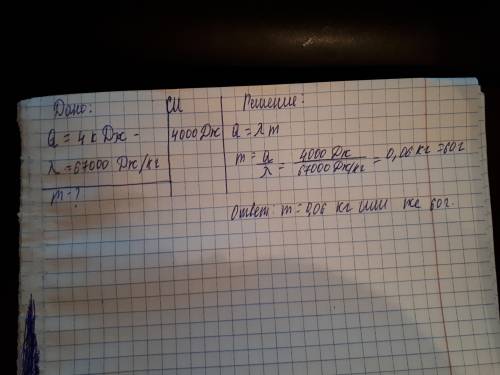 Дано:
Q = 4 кДж -
λ = 67000 Дж/кг
m = ?
СИ
4000 Дж
Решение:
Q = λ m
m = Q/λ = 4000 Дж / 67000 Дж/кг = 0,06 кг = 60 г
Ответ: m = 0,06 кг или же 60 г.